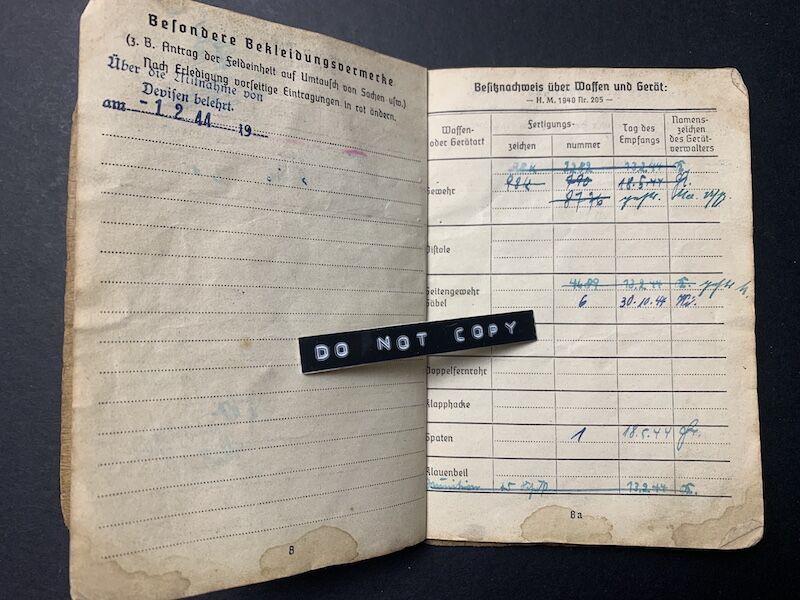 Besondere Bekleidungsvermerke
(z. B. Antrag der Feldeinheit auf Umtausch von Sachen usw.)
Nach Erledigung vorseitige Eintragungen in rot ändern.
Über die Mitnahme von
Devisen belehrt.
am - 1. 2. 44 19
8
Besitznachweis über Waffen und Gerät:
— H. M. 1940 Nr. 205 —
Waffen- oder Gerätart
Fertigungs-
zeichen
nummer
Tag des Empfangs
Namens- zeichen des Gerät- verwalters
13.2.44
Gewehr 98k 18.5.44
Pistole
Seitengewehr 13.2.44
Säbel 6 30.10.44
Doppelfernrohr
Klapphacke
Spaten 1 18.5.44
Klauenbeil
Munition 13.2.44
8a
DO NOT COPY